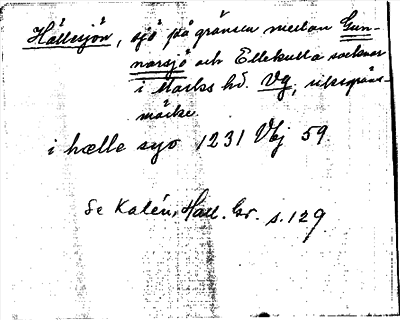 Hällesjön, sjö på gränsen mellan Gun-
narsjö och Älekulla socknar
i Marks hd. Vg, riksgräns-
märke.
i hælle syo 1231 Vbj 59.
Se Kalén, Hall. Gr. s. 129